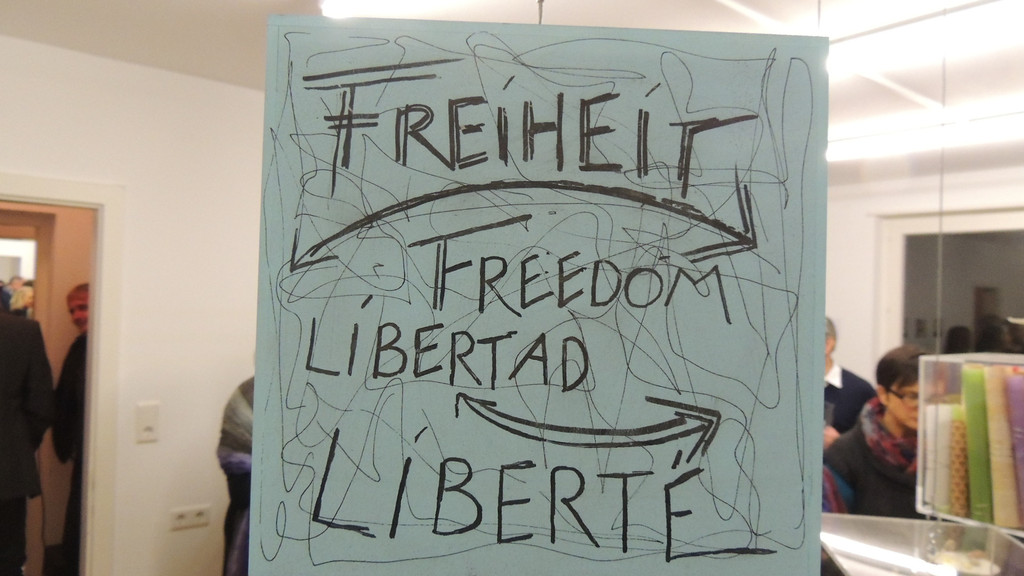 FREiHEiT
FREEDOM
LiBERTAD
LiBERTÉ